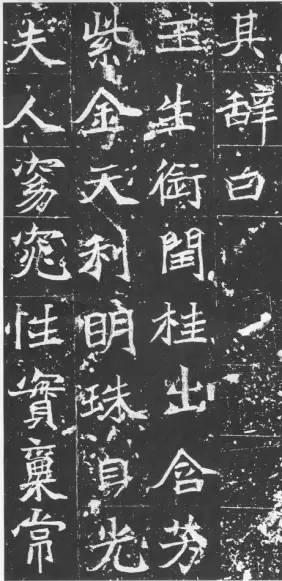 其辭曰
玉生銜閏桂出含芳
紫金天利明珠自光
夫人窈窕性實稟常